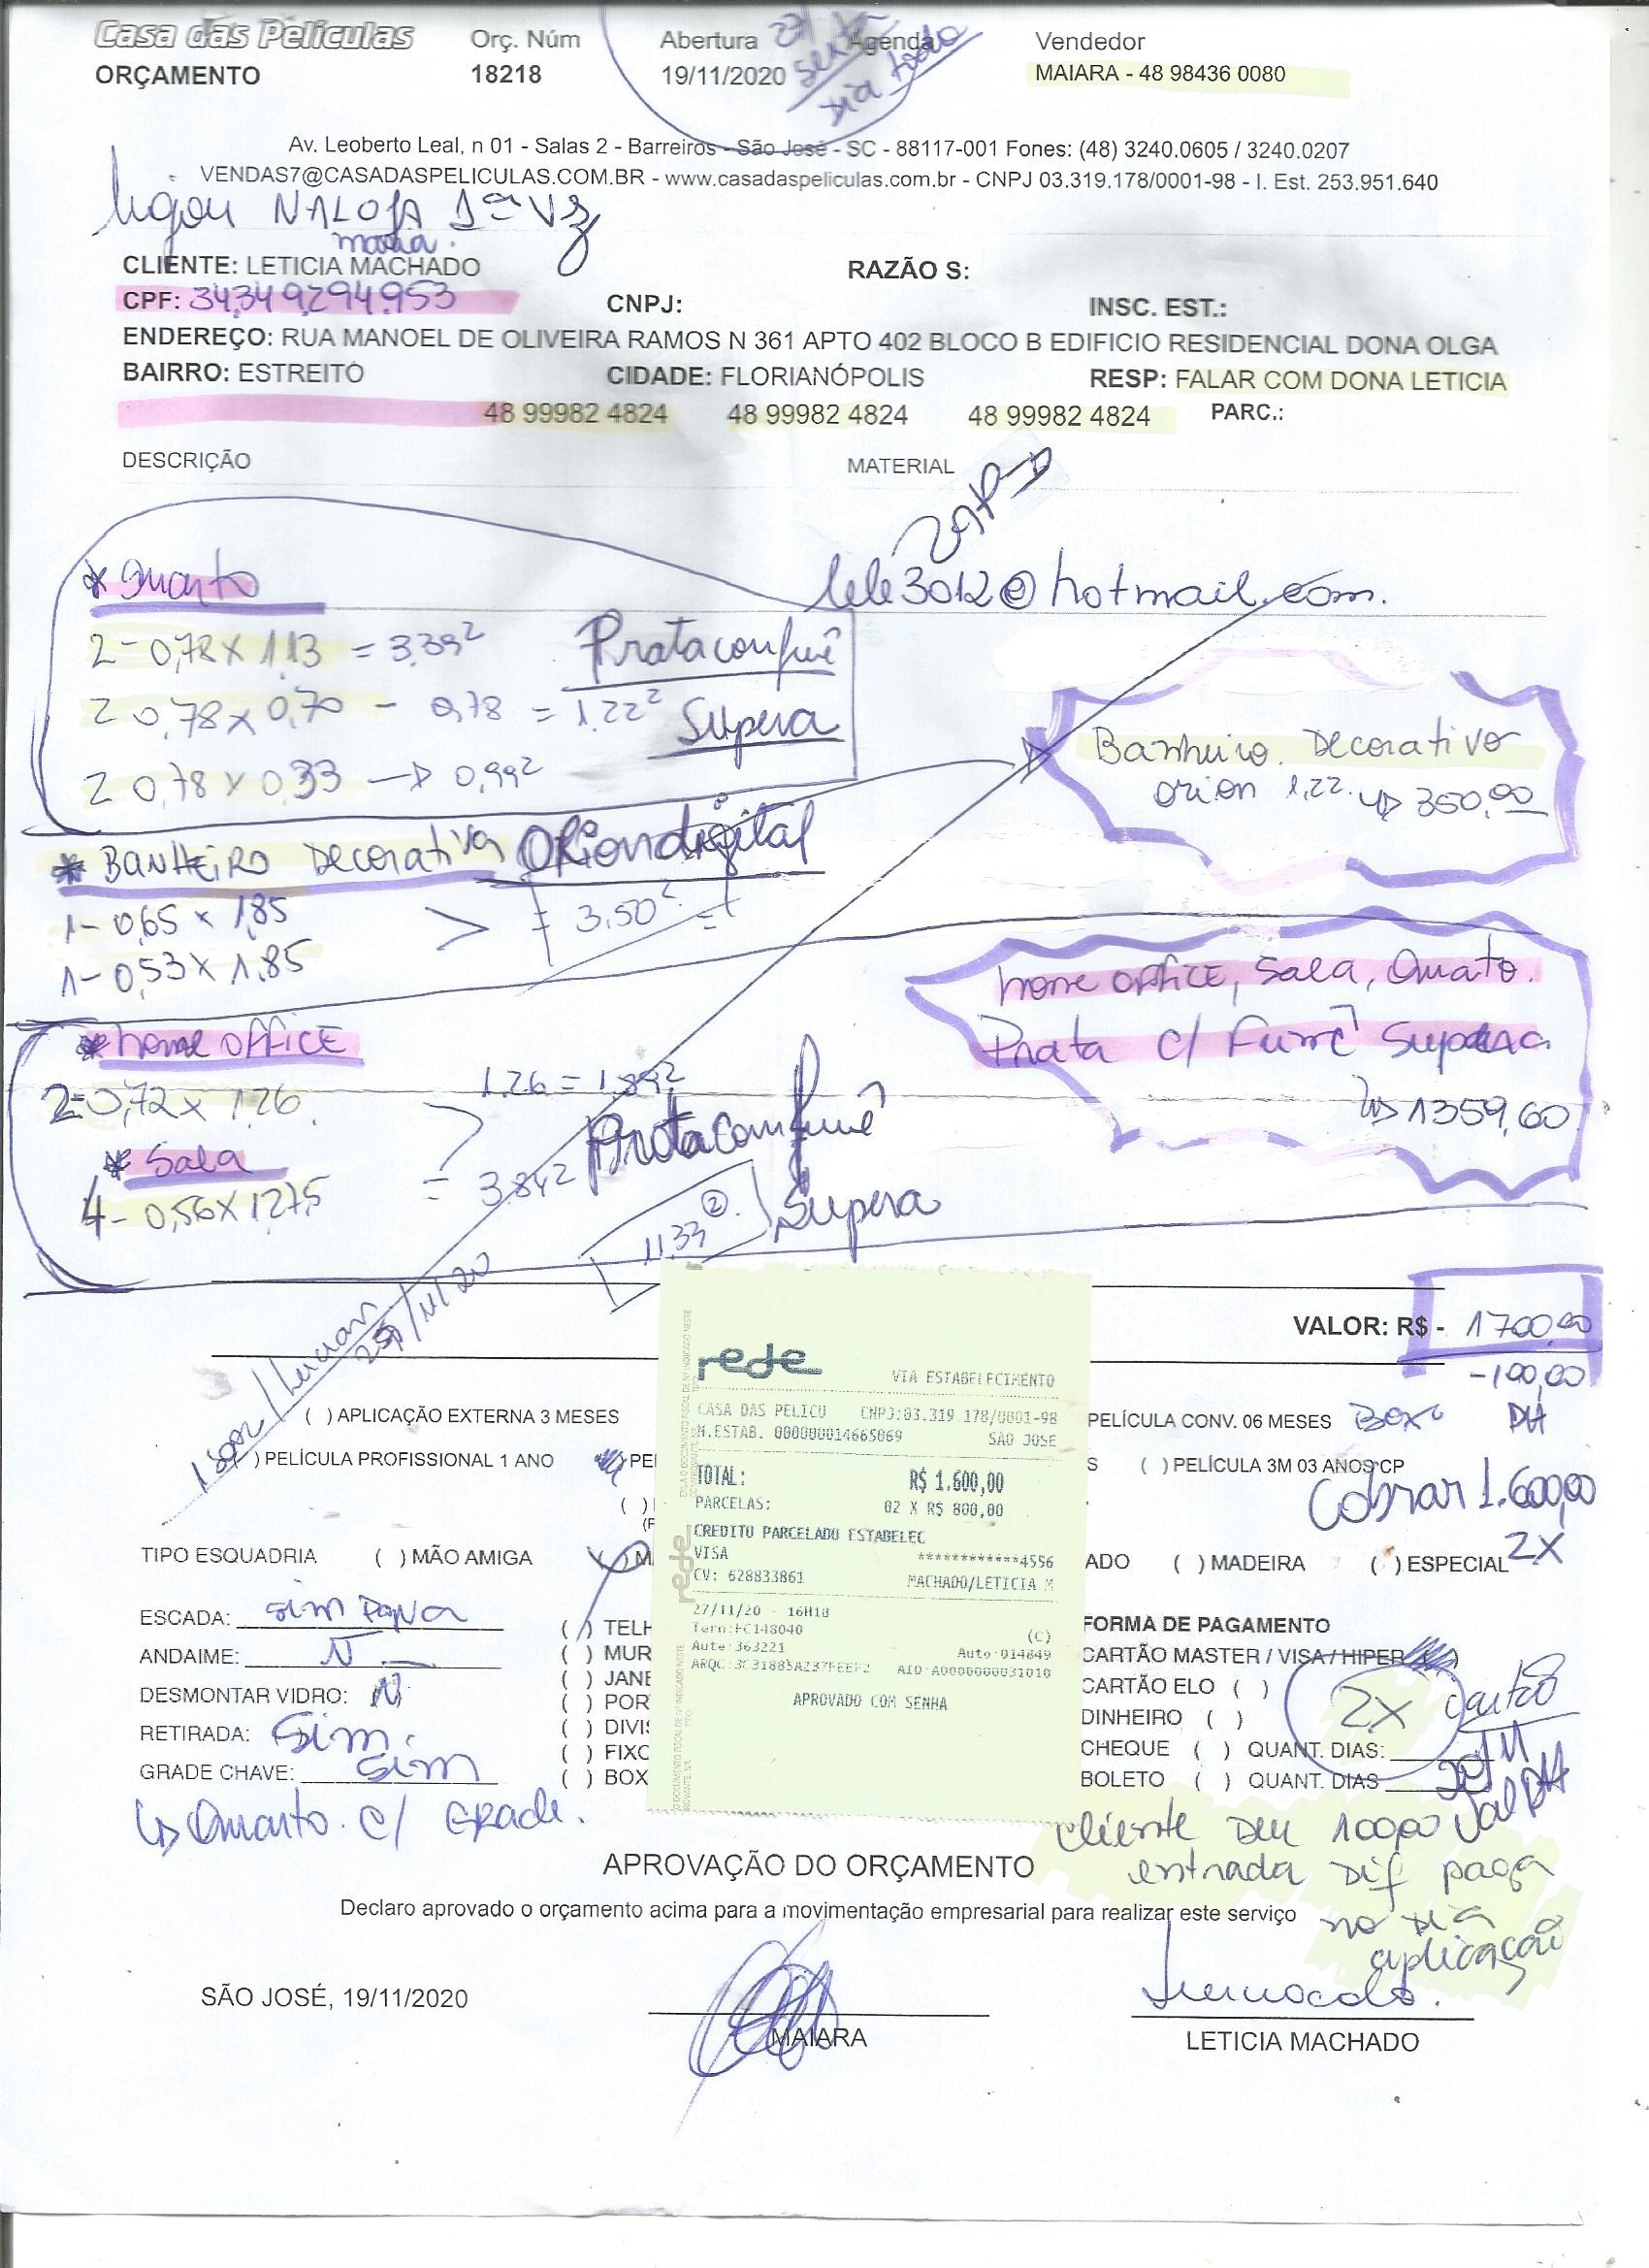 Casa das Películas Orç. Núm Abertura Agenda Vendedor
ORÇAMENTO 18218 19/11/2020 MAIARA - 48 98436 0080
27/
sexta
dia todo
Av. Leoberto Leal, n 01 - Salas 2 - Barreiros - São José - SC - 88117-001 Fones: (48) 3240.0605 / 3240.0207
VENDAS7@CASADASPELICULAS.COM.BR - www.casadaspeliculas.com.br - CNPJ 03.319.178/0001-98 - I. Est. 253.951.640
ligou NALOJA 1ª Vz
maria.
CLIENTE: LETICIA MACHADO RAZÃO S:
CPF: 34349294953 CNPJ: INSC. EST.:
ENDEREÇO: RUA MANOEL DE OLIVEIRA RAMOS N 361 APTO 402 BLOCO B EDIFICIO RESIDENCIAL DONA OLGA
BAIRRO: ESTREITO CIDADE: FLORIANÓPOLIS RESP: FALAR COM DONA LETICIA
48 99982 4824 48 99982 4824 48 99982 4824 PARC.:
DESCRIÇÃO MATERIAL
* Quarto
lele3012@hotmail.com.
2 - 0,78 x 1,13 = 3.39² Prataconfumê
2 0,78 x 0,70 - 0,78 = 1.22² Supera
2 0,78 x 0,33 → 0,99²
Banheiro. Decorativo
orion 1,22. ↳ 350,00
* BANHEIRO Decorativa Oriondigital
1 - 0,65 x 1,85
1 - 0,53 x 1,85 > = 3.50²
home office, Sala, Quarto.
Prata c/ Fumê Supera
↳ 1359,60
* home office
2 = 0,72 x 1,26 1.26 = 1.89²
Prataconfumê
* Sala
4 - 0,56 x 1,275 = 3.84²
Supera
11.33²
VALOR: R$ - 1700,00
- 100,00
/Lucian 25/11/20
( ) APLICAÇÃO EXTERNA 3 MESES PELÍCULA CONV. 06 MESES Box
) PELÍCULA PROFISSIONAL 1 ANO PE S ( ) PELÍCULA 3M 03 ANOS CP
Cobrar 1.600,00
2X
TIPO ESQUADRIA ( ) MÃO AMIGA M ADO ( ) MADEIRA ( ) ESPECIAL
rede
VIA ESTABELECIMENTO
CASA DAS PELICU CNPJ:03.319.178/0001-98
N.ESTAB. 000000014665069 SAO JOSE
TOTAL: R$ 1.600,00
PARCELAS: 02 X R$ 800,00
CREDITO PARCELADO ESTABELEC
VISA ************4556
CV: 628833861 MACHADO/LETICIA M
27/11/20 - 16H18
Term:FC148040 (C)
Aute:363221 Auto:014649
ARQC:3C31885A237FEEF2 AID:A0000000031010
APROVADO COM SENHA
rede
ESCADA: Sim
ANDAIME: N
DESMONTAR VIDRO: N
RETIRADA: Sim.
GRADE CHAVE: Sim
↳ Quarto. c/ Grade.
( ) TELH
( ) MUR
( ) JANE
( ) POR
( ) DIVI
( ) FIXO
( ) BOX
FORMA DE PAGAMENTO
CARTÃO MASTER / VISA / HIPER )
CARTÃO ELO ( ) 2X cartão
DINHEIRO ( )
CHEQUE ( ) QUANT. DIAS:
BOLETO ( ) QUANT. DIAS
cliente deu 100,00
entrada dif paga
no dia
aplicação
APROVAÇÃO DO ORÇAMENTO
Declaro aprovado o orçamento acima para a movimentação empresarial para realizar este serviço
SÃO JOSÉ, 19/11/2020
MAIARA LETICIA MACHADO